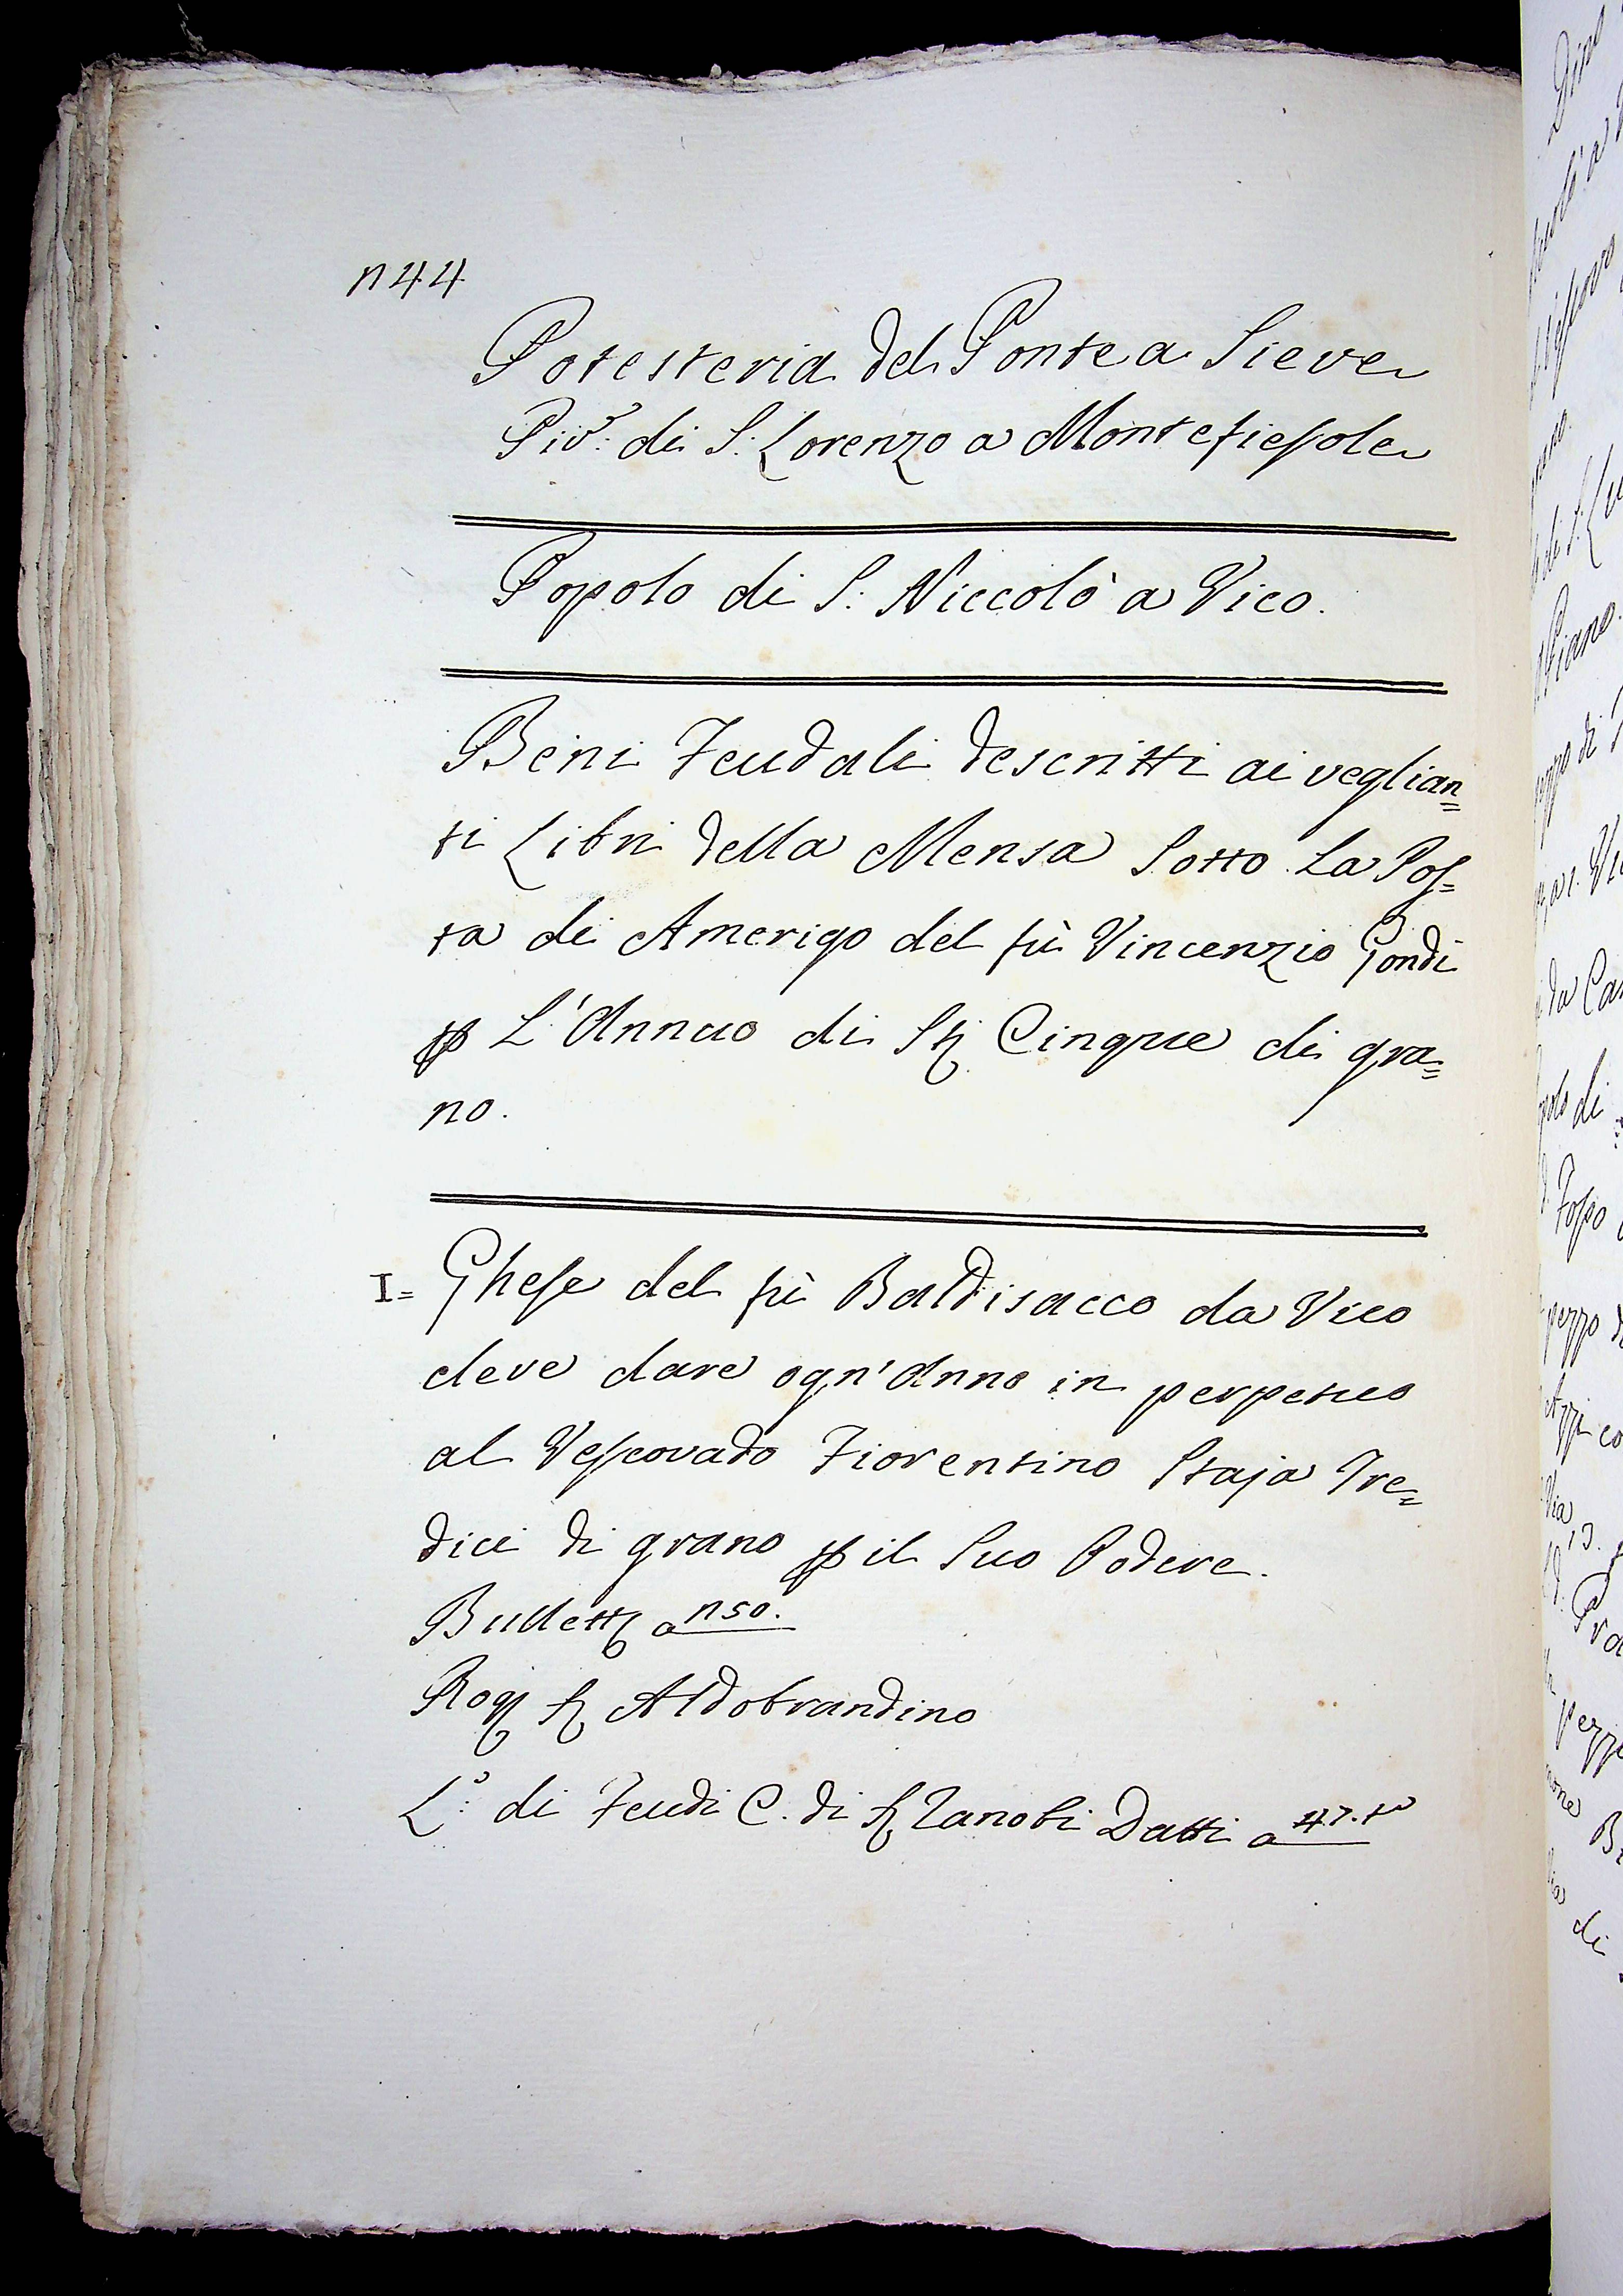 n 44
Potesteria del Ponte a Sieve
Piv.e di S: Lorenzo a Montefiesole
Popolo di S: Niccolò a Vico.
Beni Feudali descritti ai veglian=
ti Libri della Mensa Sotto La Pos=
ta di Amerigo del fù Vincenzio Gondi
p L'Annuo di St Cinque di gra=
no.
I= Ghese del fù Baldisacco da Vico
deve dare ogn'Anno in perpetuo
al Vescovado Fiorentino Staja Tre=
dici di grano p il Suo Podere.
Bullett a n 50.
Rog S Aldobrandino
L.o di Feudi C. di S Zanobi Datti a